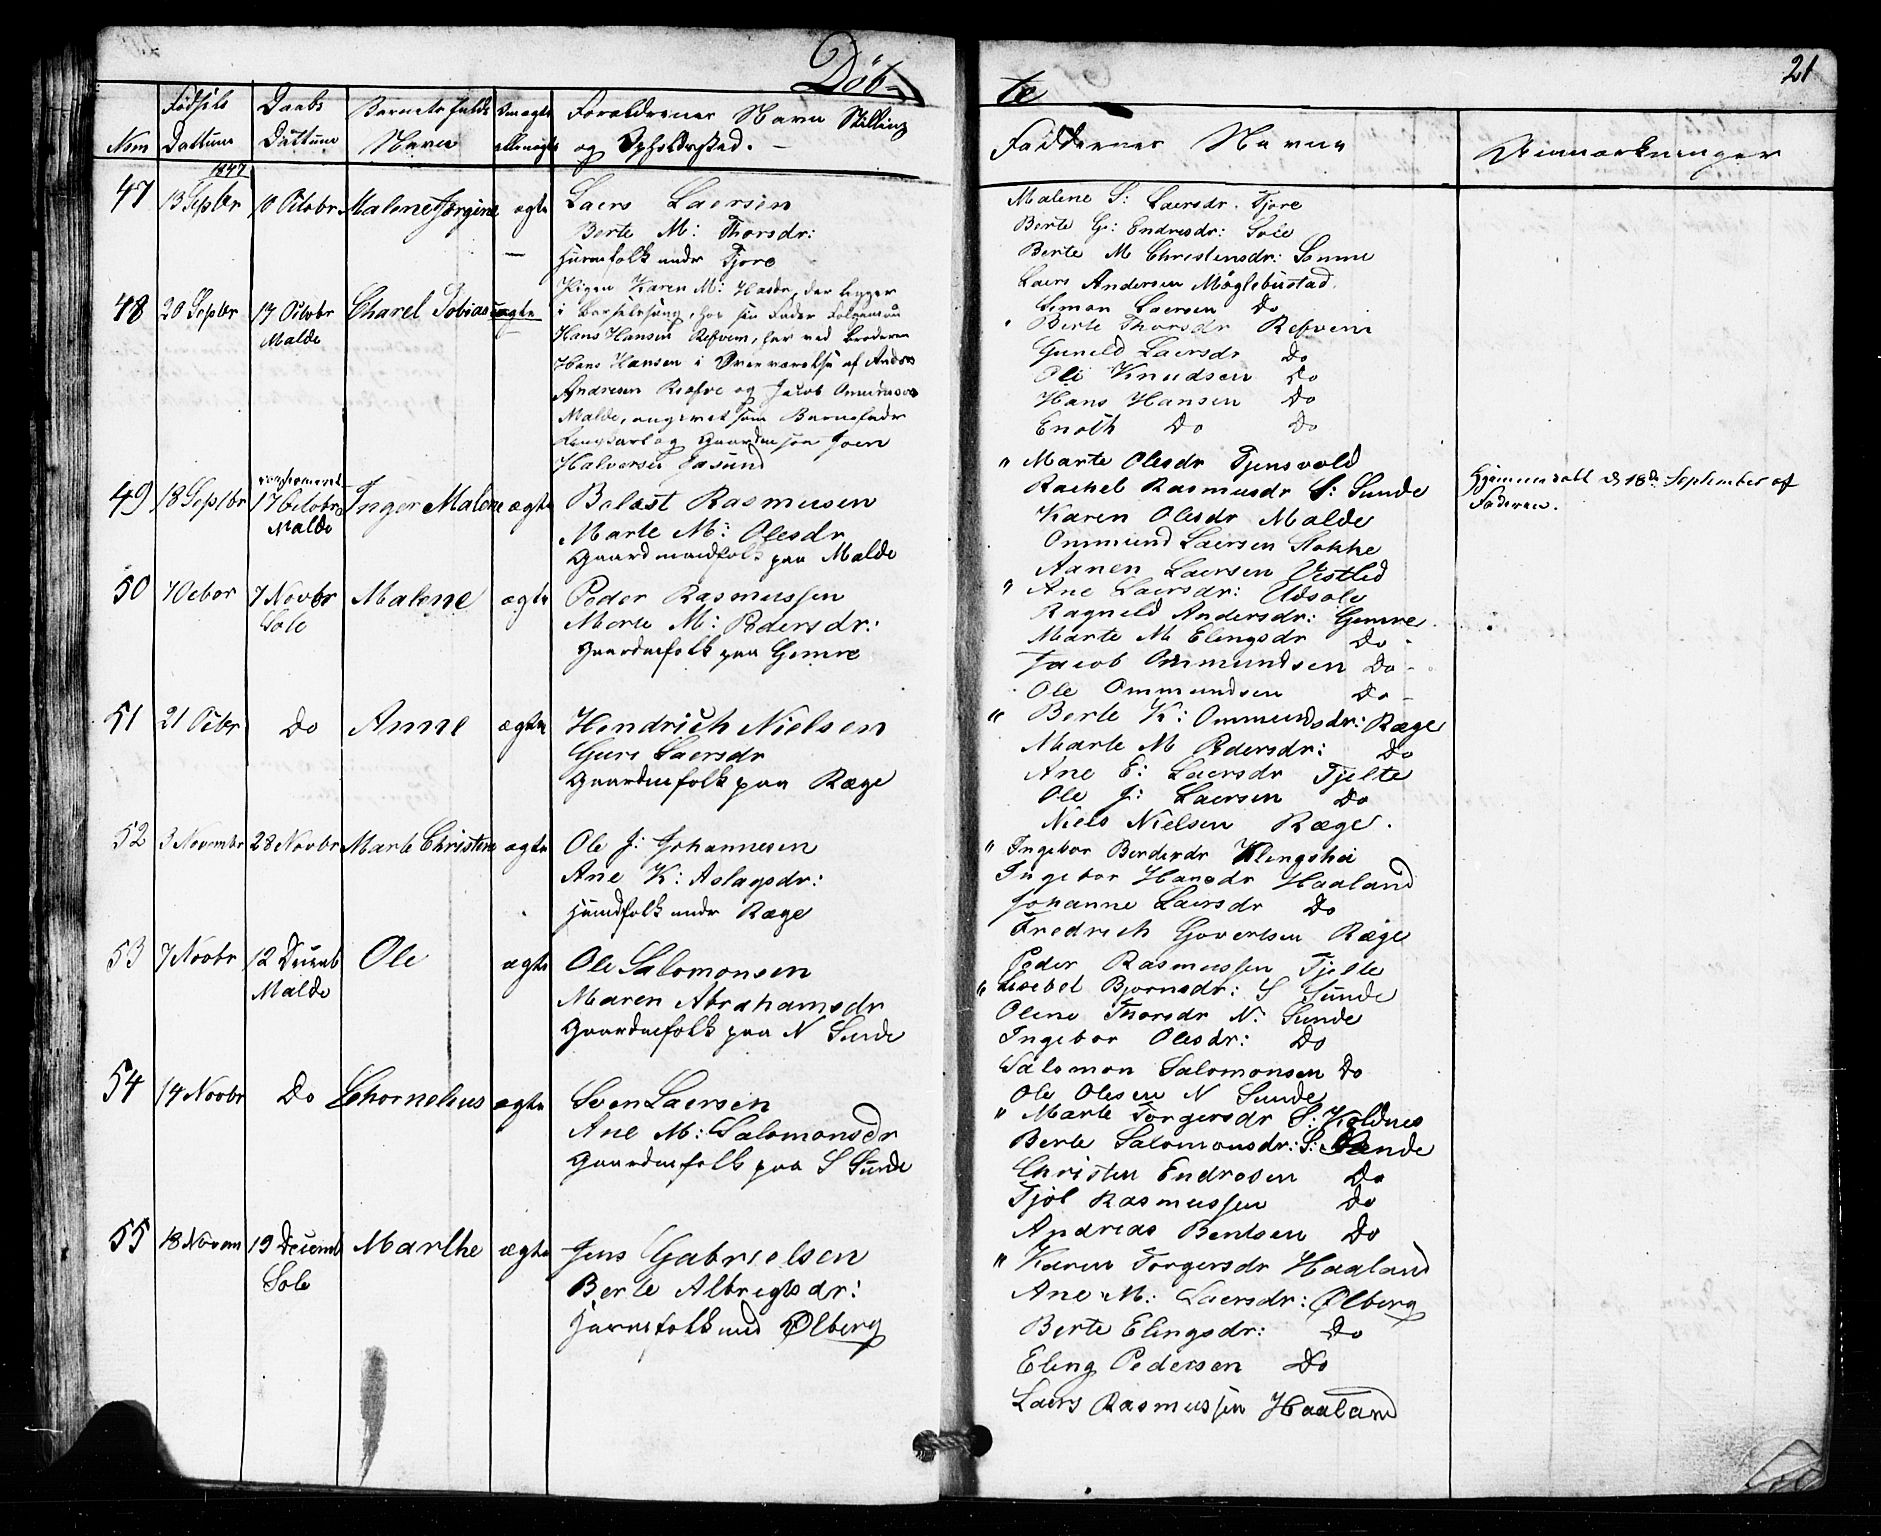 Døb-
te
21
Nom
Fødsels
Dattum
Daabs
Dattum
Barnets fulde
Navn
Om ægte
eller uægte
Forældrenes Navn Stilling
og Opholdssted.
Faddernes Navne
Anmærkninger
1847
47 13 Septbr 10 Octobr Malene Jørgine ægte
Laers Laersen
Berte M: Thorsdr:
Huusfolk under Tjore
Malene S: Laersdr. Tjore
Berte G: Endresdr: Sole
Berte M Christensdr: Sømme
Laers Andersen Møglebustad
Simon Laersen Do
48 20 Septbr 17 Octobr Charel Tobias uægte
Malde
Pigen Karen M: Hansdr, der ligger
i Barselseng, hos sin Fader
Hans Hansen Refvem, har ved Broderen
Hans Hansen i Overværelse af Anders
Andresen Ræfve og Jacob Ommundsen
Malde, angivet som Barnefader
Ungkarl og Gaardmsøn Joen
Halversen Jasund
" Berte Thorsdr Refvem
Guneld Laersdr Do
Ole Knudsen Do
Hans Hansen Do
Enoth Do Do
49 18 Septbr 17 Octobr Inger Malene ægte
Malde
Balast Rasmusen
Marte M: Olesdr
Gaardmandfolk paa Malde
" Marte Olesdr Tjensvold
Rachel Rasmusdr S: Sunde
Karen Olesdr Malde
Ommund Laersen Stokke
Aanen Laersen Vestled
Hjemmedøbt d 18de September af
Faderen.
50 7 Octbr 7 Novbr Malene ægte
Sole
Peder Rasmussen
Marte M: Pedersdr:
Gaardmfolk paa Gimre
" Ane Laersdr: Udsole
Ragneld Andersdr: Gimre
Marte M Elingsdr Do
Jacob Ommundsen Do
Ole Ommundsen Do
51 21 Octbr Do Anne ægte
Hendrich Nielsen
Guri Laersdr
Gaardmfolk paa Ræge
" Berte K: Ommundsdr: Ræge
Marte M Pedersdr: Do
Ane E: Laersdr Tjelte
Ole J: Laersen Do
Niels Nielsen Ræge.
52 3 Novembr 28 Novbr Marte Christine ægte
Ole J: Johannesen
Ane K: Aslagsdr:
Huusfolk under Ræge
" Ingebor Berdesdr Klingshei
Ingebor Hansdr Haaland
Johanne Laersdr Do
Fredrich Govertsen Ræge
Peder Rasmussen Tjelte
53 7 Novbr 12 Decemb Ole ægte
Malde
Ole Salomonsen
Maren Abrahamsdr
Gaardmfolk paa N Sunde
" Lisebet Bjornsdr: S Sunde
Olene Thorsdr N. Sunde
Ingebor Olesdr: Do
Salomon Salomonsen Do
Ole Olesen N Sunde
54 14 Novbr Do Chornelius ægte
Sven Laersen
Ane M: Salomonsdr
Gaardmfolk paa S Sunde
" Marte Torgersdr S: Koldnes
Berte Salomonsdr: S: Sunde
Christen Endresen Do
Tjøl Rasmussen Do
Andreas Bentsen Do
55 18 Novem 19 Decemb Marthe ægte
Sole
Jens Gabrielsen
Berte Albregtsdr:
Huusfolk und Ølberg
" Karen Torgersdr Haaland
Ane M: Laersdr: Ølberg
Berte Elingsdr: Do
Eling Pedersen Do
Laers Rasmussen Haaland